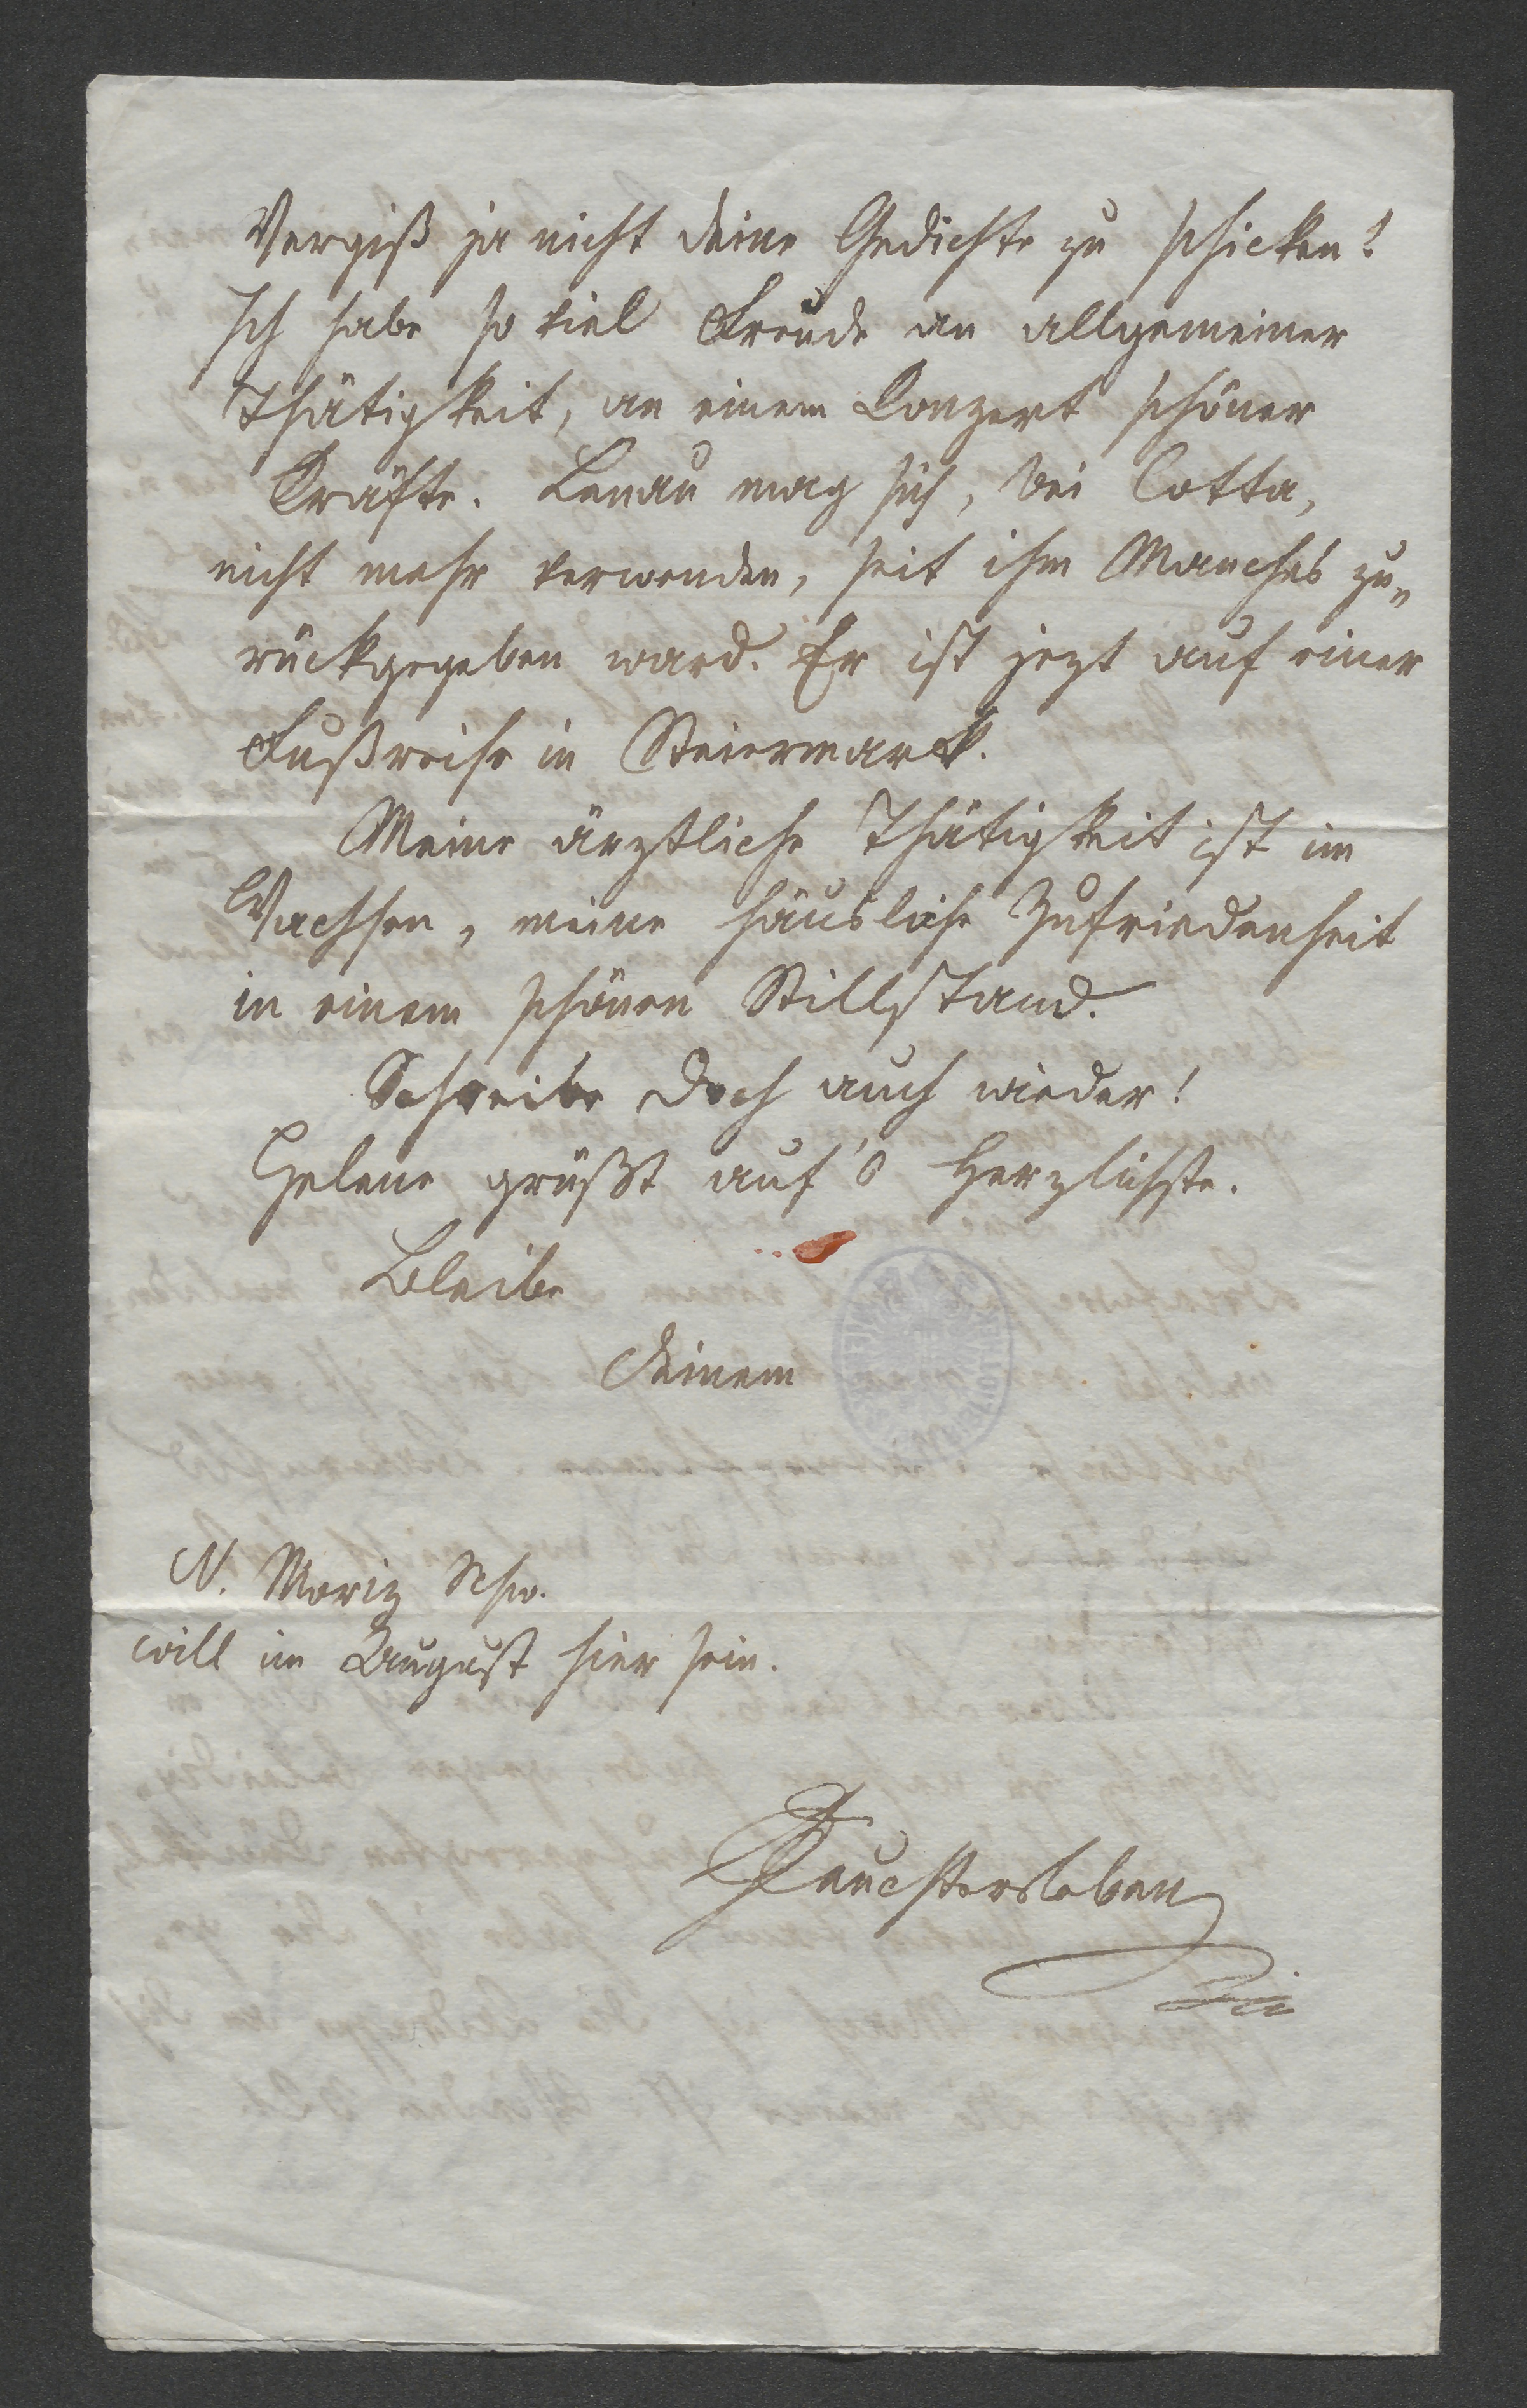 Vergiß ja nicht deine Gedichte zu schicken!
Ich habe so viel Freude an allgemeiner
Thätigkeit, an einem Conzert schöner
Kräfte. Lenau mag sich, bei Cotta,
nicht mehr verwenden, seit ihm Manches zu„
rückgegeben ward. Er ist jezt auf einer
Fußreise in Steiermark.
Meine ärztliche Thätigkeit ist im
Wachsen, meine häusliche Zufriedenheit
in einem schönen Stillstand.
Schreibe doch auch wieder!
Helene grüßt auf's Herzlichste.
Bleibe
deinem
N. Moriz Schw.
will im August hier sein.
Feuchtersleben